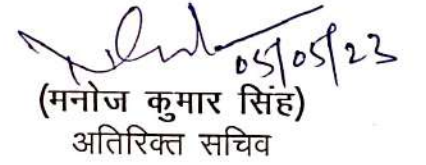 05/05/23
(मनोज कुमार सिंह)
अतिरिक्त सचिव